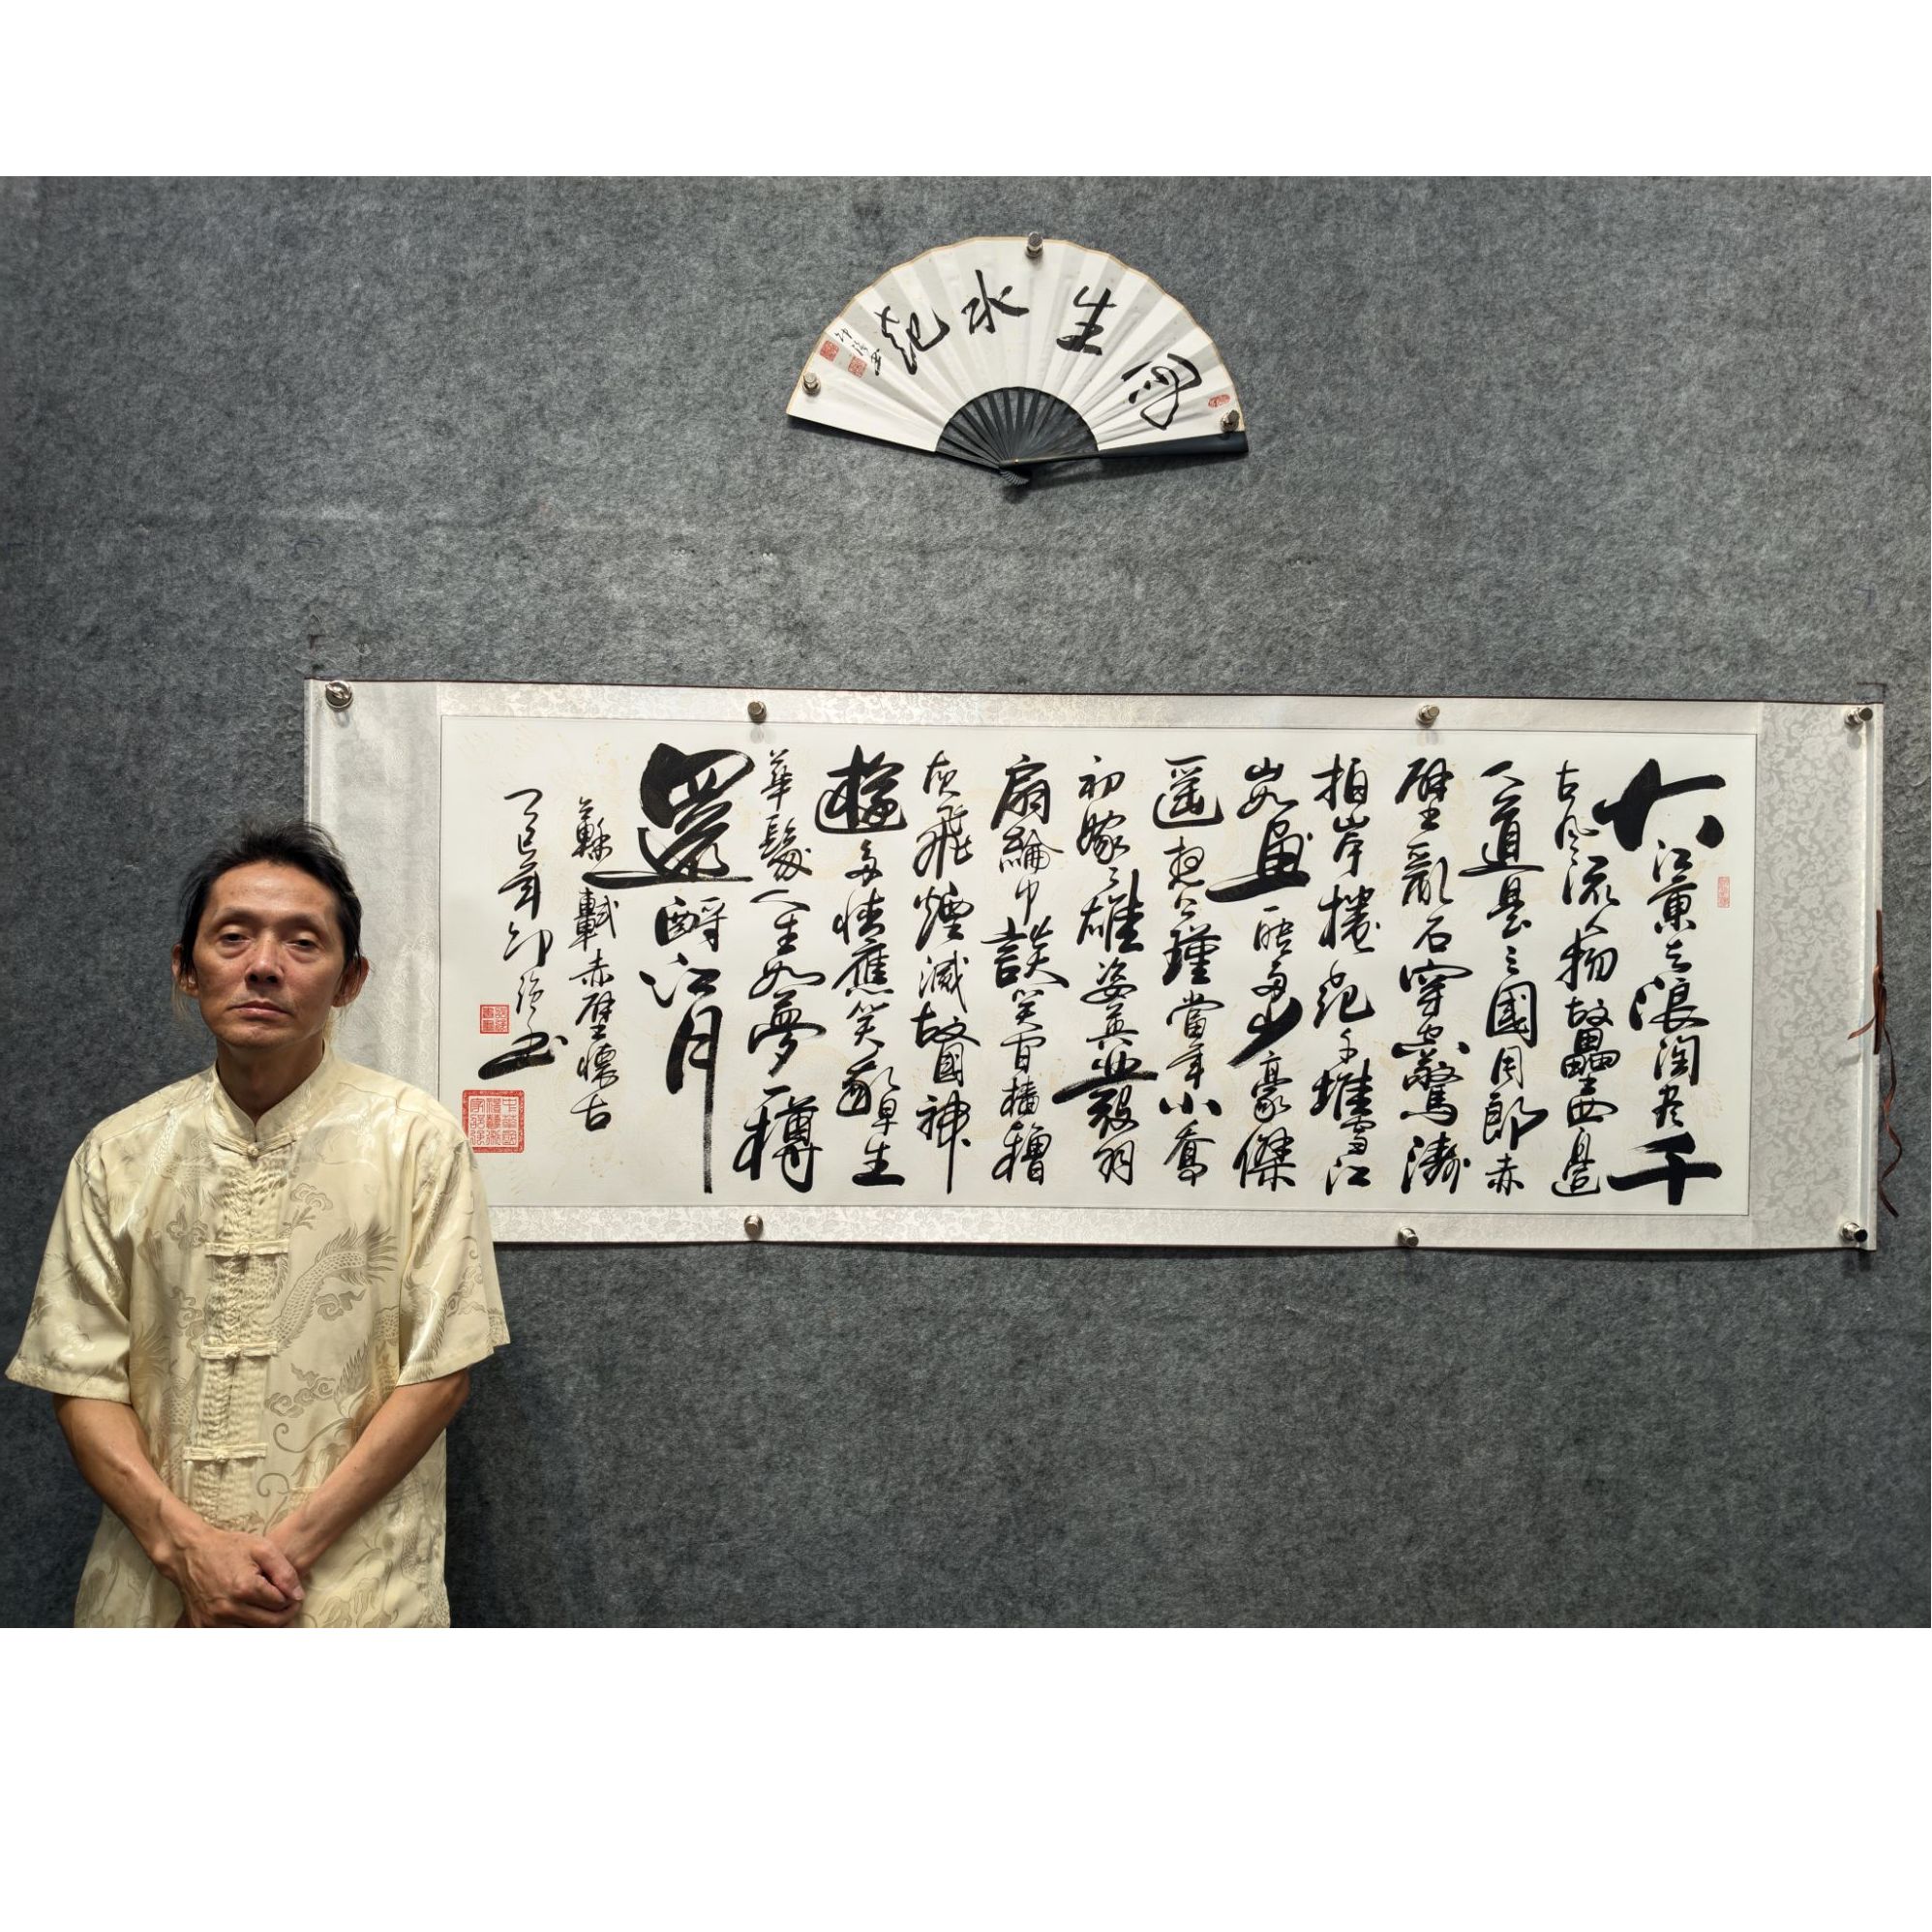 风生水起
大江東去浪淘尽千
古风流人物故壘西邊
人道是三國周郎赤
壁亂石穿空驚濤
拍岸捲起千堆雪江
山如畫一時多少豪傑
遥想公瑾當年小喬
初嫁了雄姿英發羽
扇綸巾談笑间檣櫓
灰飛煙滅故國神
遊多情應笑我早生
華髮人生如夢一樽
還酹江月
蘇軾赤壁懷古
乙巳年
书